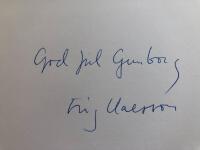 God Jul Gunborg
Stig Claesson